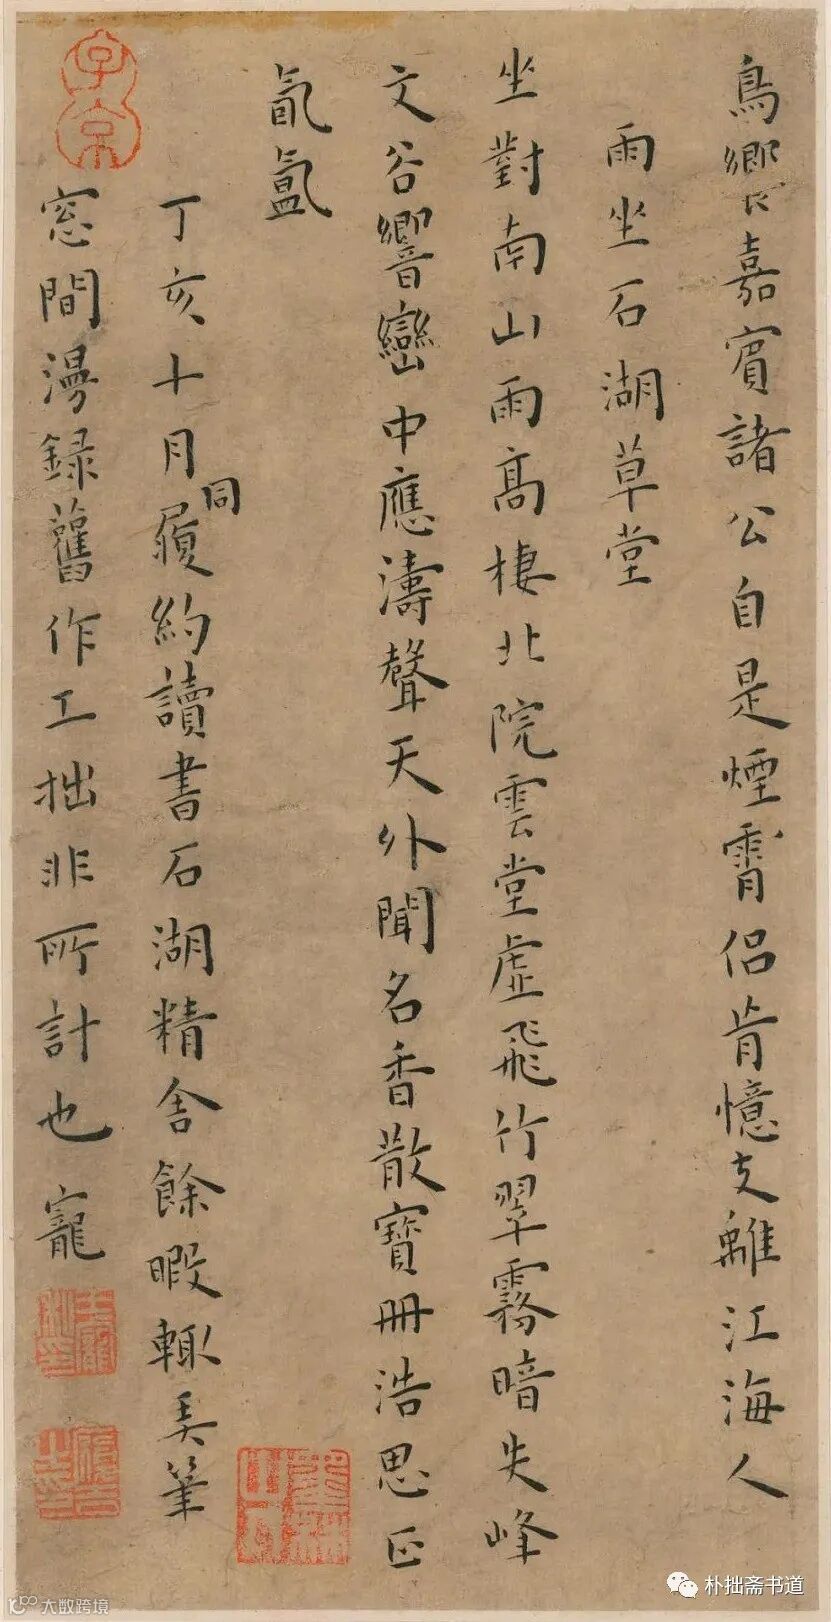 鳥響嘉賓諸公自是煙霄侶肯憶支離江海人
雨坐石湖草堂
坐對南山雨高棲北院雲堂虛飛竹翠霧暗失峰
文谷響巒中應濤聲天外聞名香散寶冊浩思正
氤氳
丁亥十月同履約讀書石湖精舍餘暇輒弄筆
窓間漫録舊作工拙非所計也寵
朴拙斋书道
大数跨境